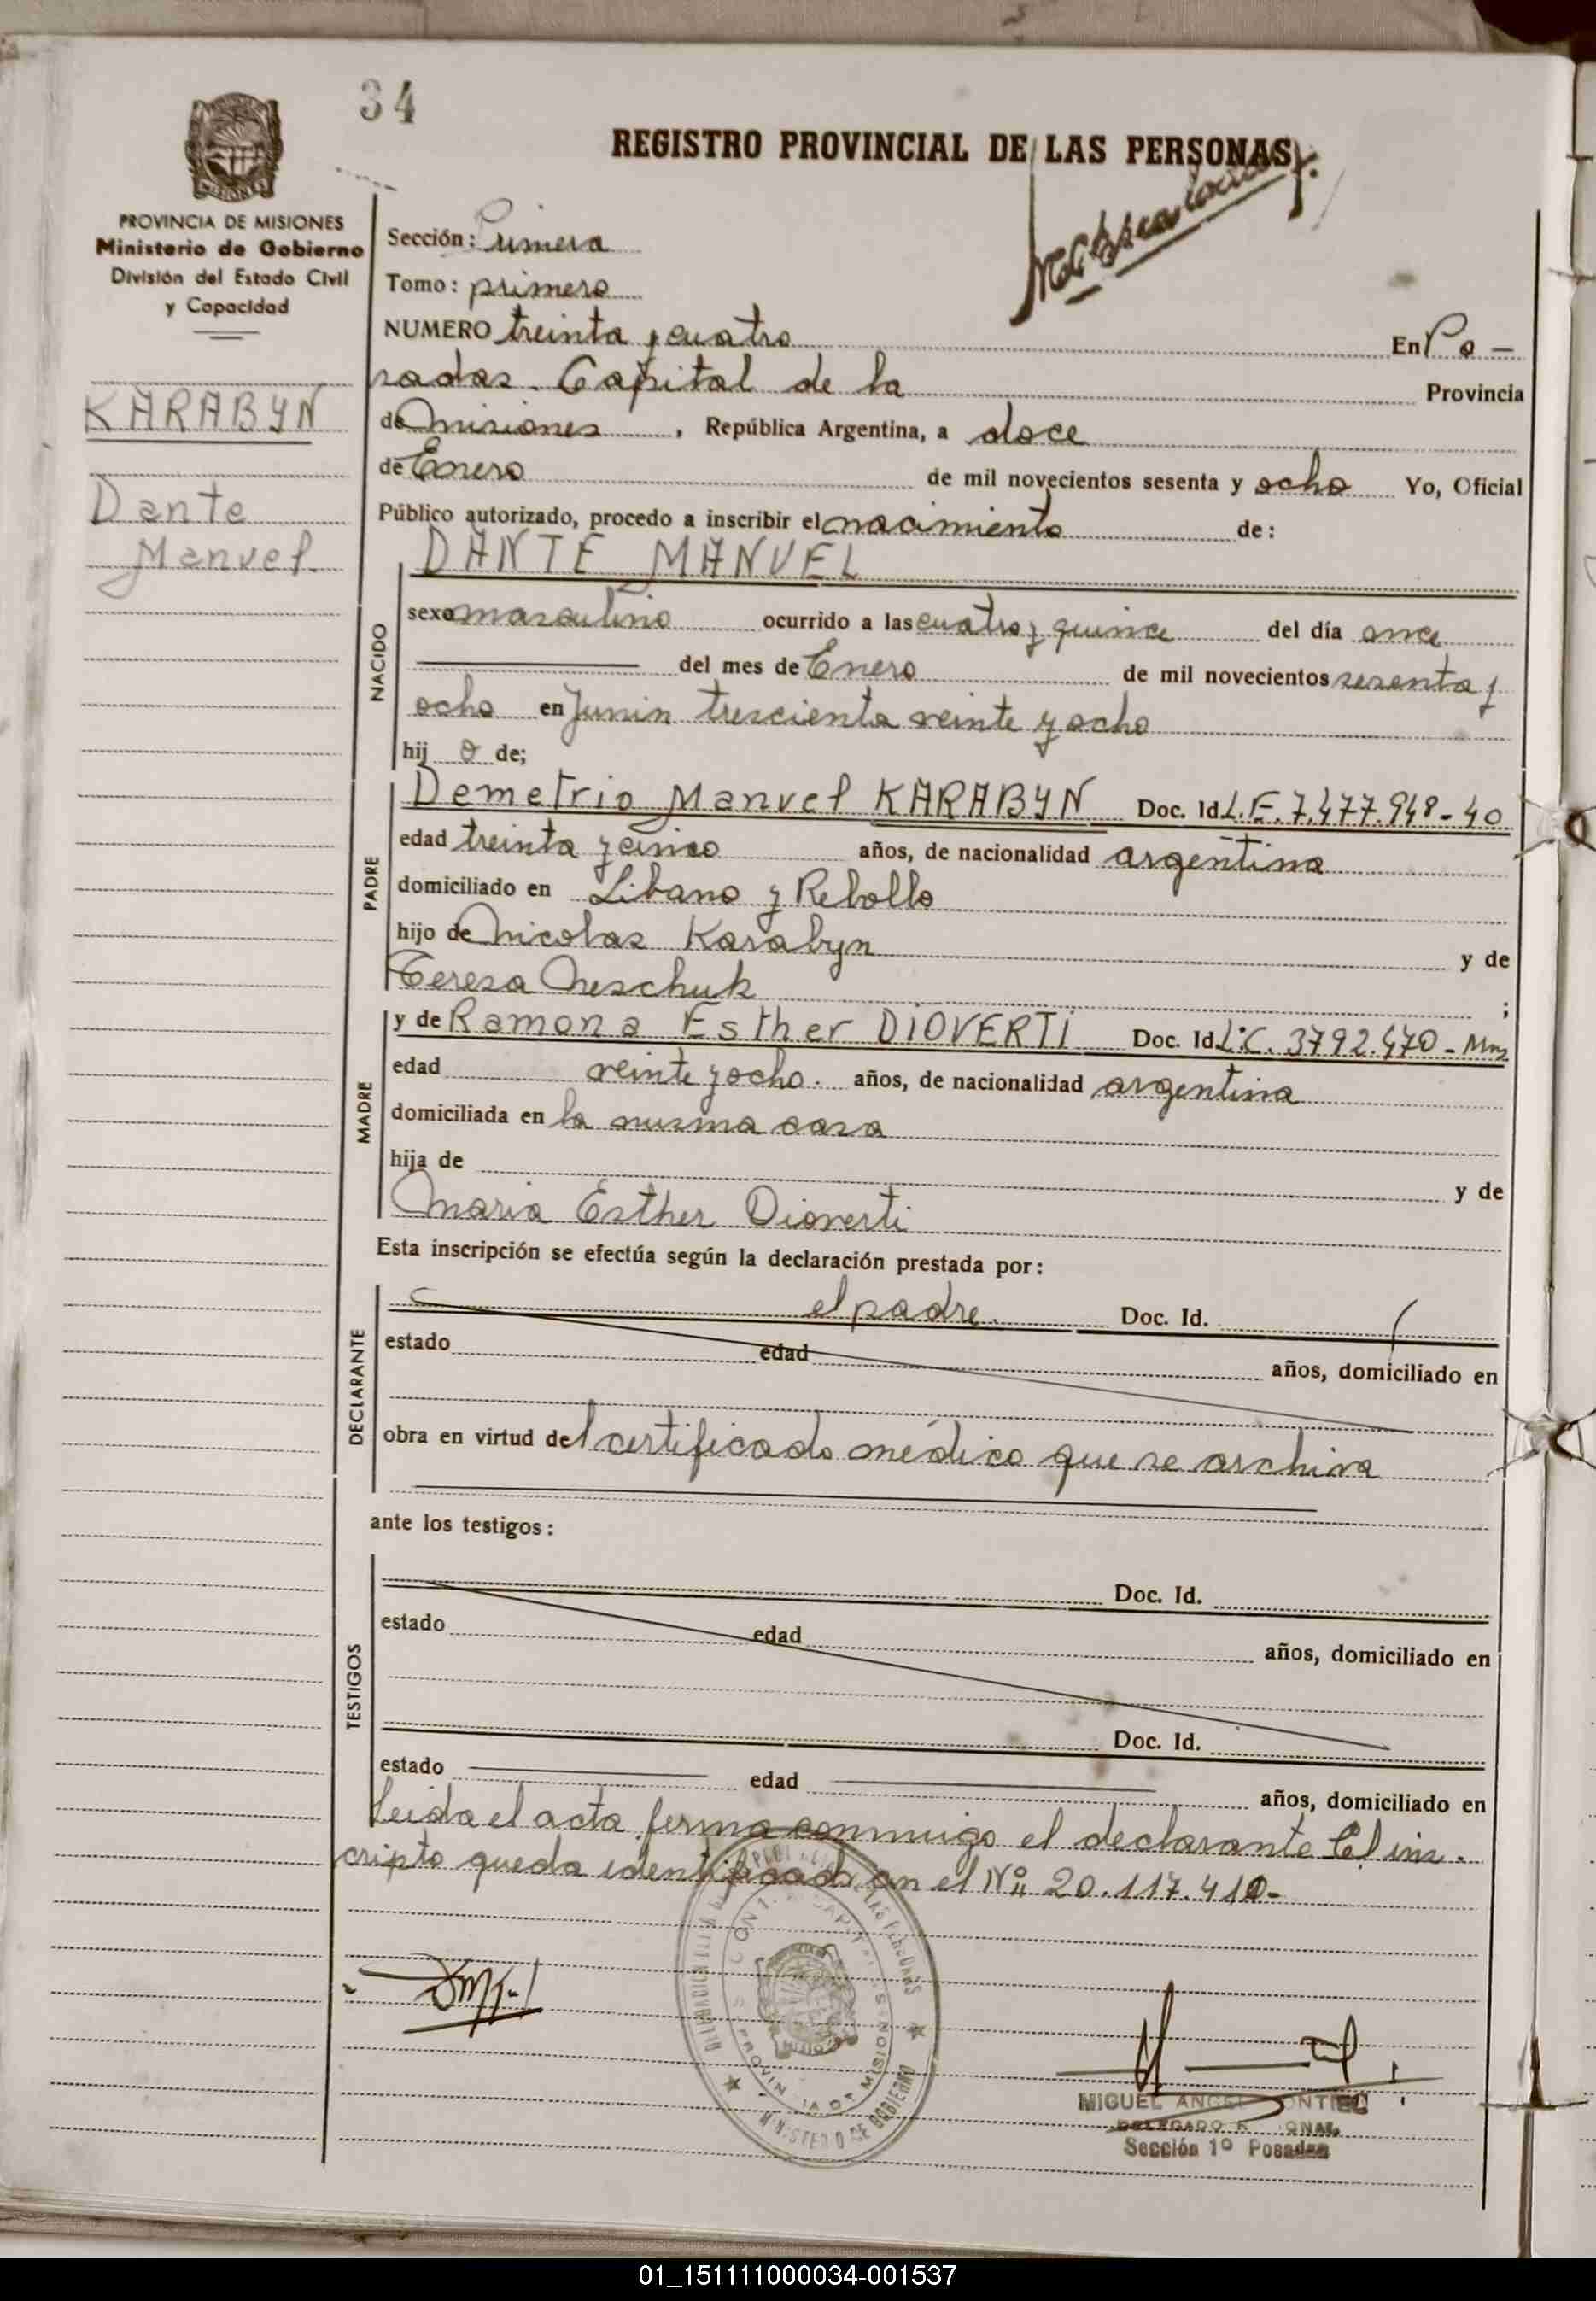 34
REGISTRO PROVINCIAL DE LAS PERSONAS
PROVINCIA DE MISIONES
Ministerio de Gobierno
División del Estado Civil
y Capacidad
KARABYN
Dante
Manuel.
Sección: Primera
Tomo: primero
NUMERO treinta y cuatro En Po-
sadas. Capital de la Provincia
de Misiones, República Argentina, a doce
de Enero de mil novecientos sesenta y ocho Yo, Oficial
Público autorizado, procedo a inscribir el nacimiento de:
NACIDO
DANTE MANUEL
sexo masculino ocurrido a las cuatro y quince del día once
del mes de Enero de mil novecientos sesenta y
ocho en Junin trescienta veinte y ocho
hij o de;
PADRE
Demetrio Manuel KARABYN Doc. Id L.E. 7.477.948-40
edad treinta y cinco años, de nacionalidad argentina
domiciliado en Libano y Rebollo
hijo de Nicolas Karabyn y de
Teresa Neschuk ;
MADRE
y de Ramona Esther DIOVERTI Doc. Id L.C. 3792.470-Mns
edad veinte y ocho. años, de nacionalidad argentina
domiciliada en la misma casa
hija de y de
Maria Esther Dioverti
Esta inscripción se efectúa según la declaración prestada por:
DECLARANTE
el padre. Doc. Id.
estado edad años, domiciliado en
obra en virtud del certificado médico que se archiva
ante los testigos:
TESTIGOS
Doc. Id.
estado edad años, domiciliado en
Doc. Id.
estado edad años, domiciliado en
Leida el acta firma conmigo el declarante El ins-
cripto queda identificado con el Nº 20.117.410-
MINISTERIO DE GOBIERNO
MIGUEL ANGEL
DELEGADO
Sección 1º Posadas
01_151111000034-001537